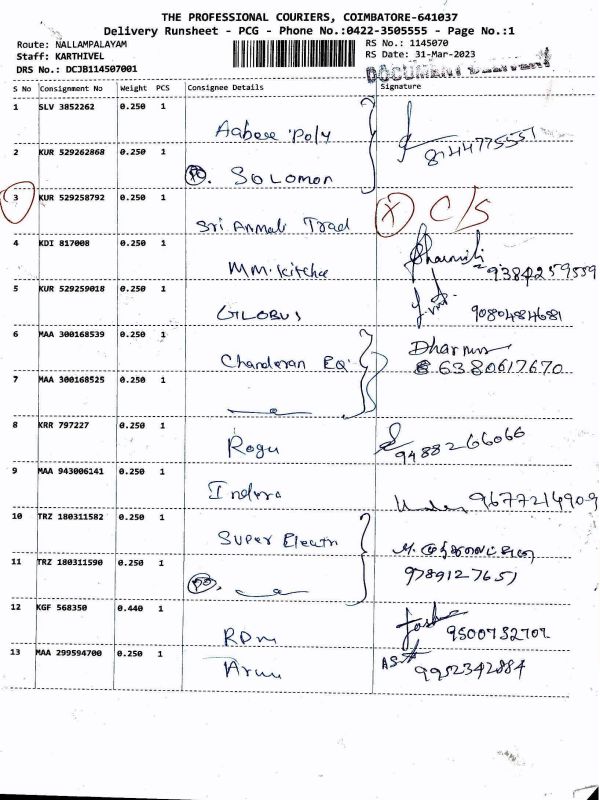 THE PROFESSIONAL COURIERS, COIMBATORE-641037
Delivery Runsheet - PCG - Phone No.:0422-3505555 - Page No.:1
Route: NALLAMPALAYAM RS No.: 1145070
Staff: KARTHIVEL RS Date: 31-Mar-2023
DRS No.: DCJB114507001 DOCUMENT
S No Consignment No Weight PCS Consignee Details Signature
1 SLV 3852262 0.250 1
Poly
2 KUR 529262868 0.250 1
SOLOMON
3 KUR 529258792 0.250 1 X C/S
Sri Anmali Trad
4 KDI 817008 0.250 1
MM. Kitche 9384259559
5 KUR 529259018 0.250 1
GLOBUS 9080484681
6 MAA 300168539 0.250 1
Chanderan EQ 6380617670
7 MAA 300168525 0.250 1
8 KRR 797227 0.250 1
Rogu 9488266066
9 MAA 943006141 0.250 1
Indera 9677214909
10 TRZ 180311582 0.250 1
Super Electn
11 TRZ 180311590 0.250 1
9789127651
12 KGF 568350 0.440 1
RDM 9500732702
13 MAA 299594700 0.250 1
Arun 9952342884